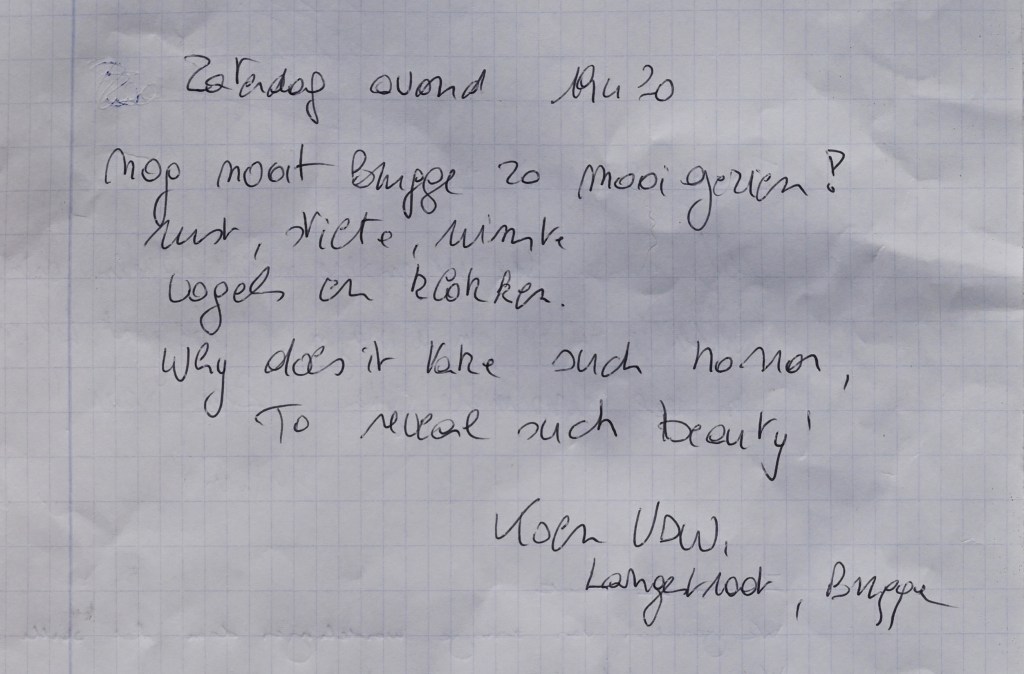 Zaterdag avond 19u20
Nog nooit Brugge zo mooi gezien?
rust, stilte, ruimte
vogels en klokken.
Why does it take such horror,
To reveal such beauty!
Koen VDW.
Langestraat, Brugge